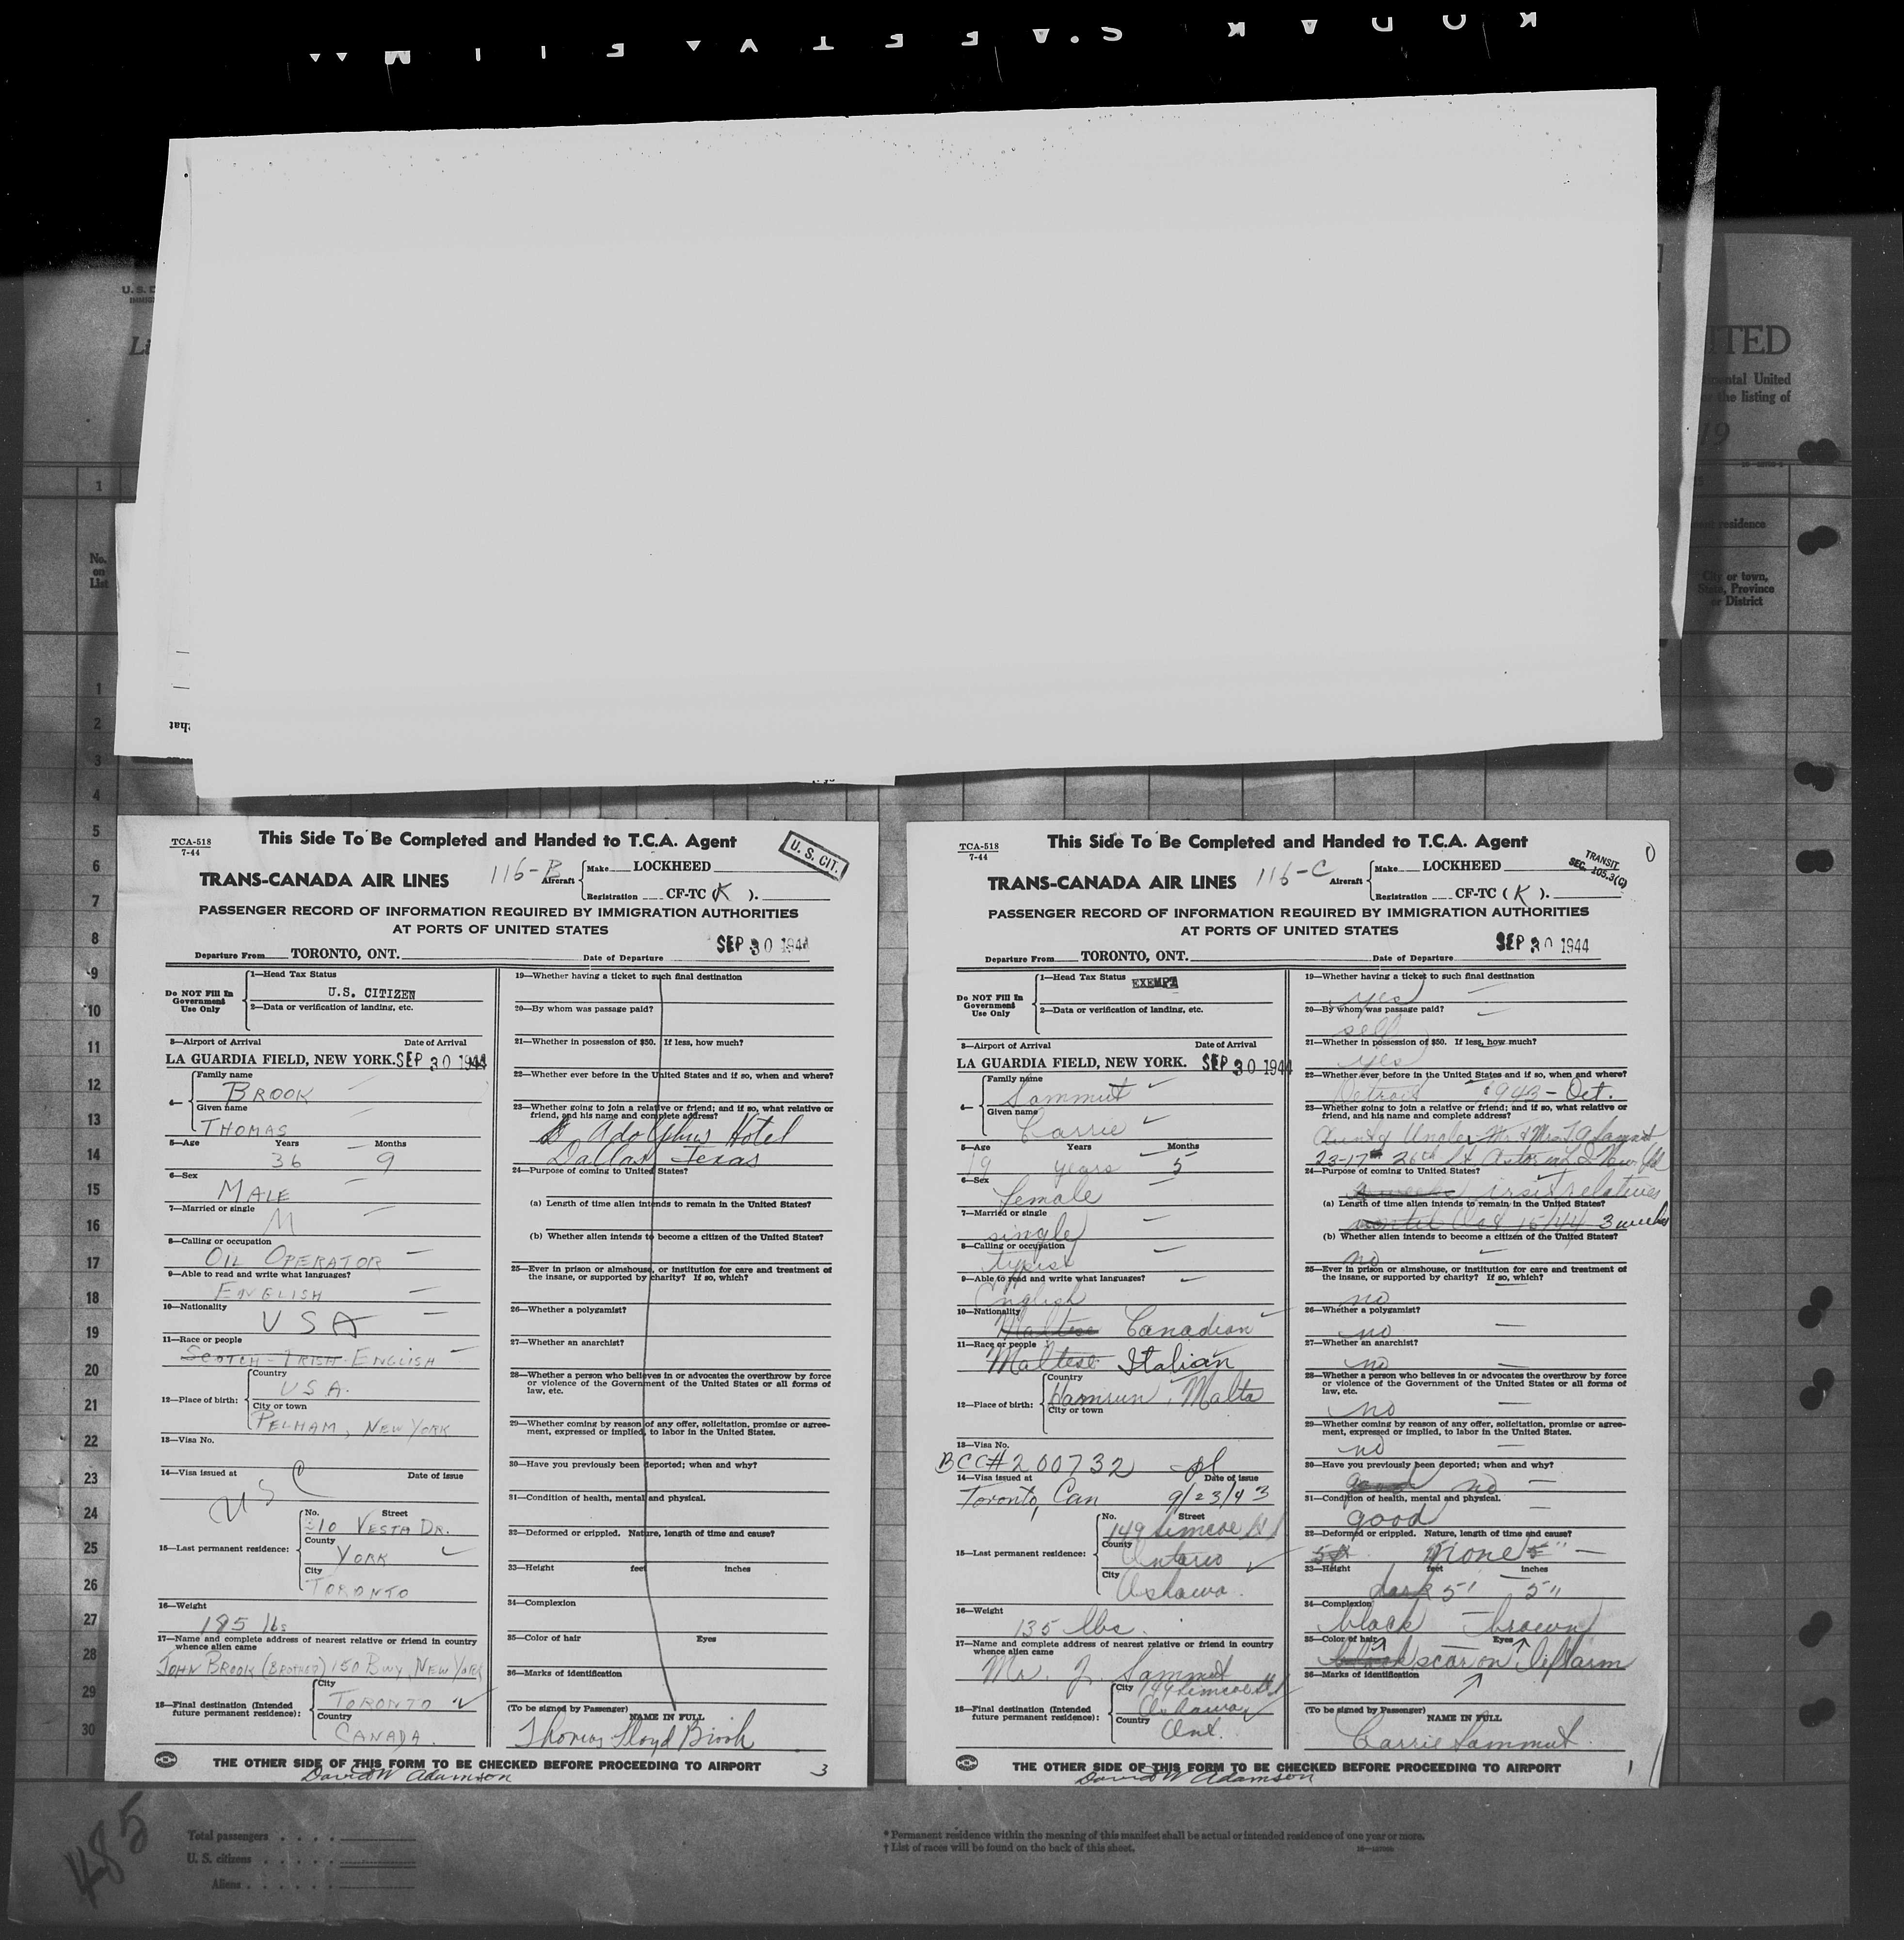 KODAK SAFETY FILM
U. S. D
La
ITED
mental United
the listing of
19
residence
City or town,
State, Province
or District
1
No.
on
List
1
2
3
4
5
6
7
8
9
10
11
12
13
14
15
16
17
18
19
20
21
22
23
24
25
26
27
28
29
30
that
TCA-518
7-44
This Side To Be Completed and Handed to T.C.A. Agent
U. S. CIT.
TRANS-CANADA AIR LINES
116-B
Aircraft
Make LOCKHEED
Registration CF-TC (K).
PASSENGER RECORD OF INFORMATION REQUIRED BY IMMIGRATION AUTHORITIES
AT PORTS OF UNITED STATES
SEP 30 1944
Departure From TORONTO, ONT. Date of Departure
Do NOT Fill In
Government
Use Only
1—Head Tax Status
U.S. CITIZEN
2—Data or verification of landing, etc.
3—Airport of Arrival Date of Arrival
LA GUARDIA FIELD, NEW YORK. SEP 30 1944
4— Family name
BROOK
Given name
THOMAS
5—Age Years Months
36 9
6—Sex
MALE
7—Married or single
M
8—Calling or occupation
OIL OPERATOR
9—Able to read and write what languages?
ENGLISH
10—Nationality
USA
11—Race or people
SCOTCH-IRISH-ENGLISH
12—Place of birth: Country
USA.
City or town
PELHAM, NEW YORK
13—Visa No.
14—Visa issued at Date of issue
US C
15—Last permanent residence: No. Street
310 VESTA DR.
County
YORK
City
TORONTO
16—Weight
185 lbs
17—Name and complete address of nearest relative or friend in country
whence alien came
JOHN BROOK (BROTHER) 150 Bwy, NEW YORK
18—Final destination (Intended
future permanent residence): City
TORONTO
Country
CANADA.
19—Whether having a ticket to such final destination
20—By whom was passage paid?
21—Whether in possession of $50. If less, how much?
22—Whether ever before in the United States and if so, when and where?
23—Whether going to join a relative or friend; and if so, what relative or
friend, and his name and complete address?
Adolphus Hotel
Dallas Texas
24—Purpose of coming to United States?
(a) Length of time alien intends to remain in the United States?
(b) Whether alien intends to become a citizen of the United States?
25—Ever in prison or almshouse, or institution for care and treatment of
the insane, or supported by charity? If so, which?
26—Whether a polygamist?
27—Whether an anarchist?
28—Whether a person who believes in or advocates the overthrow by force
or violence of the Government of the United States or all forms of
law, etc.
29—Whether coming by reason of any offer, solicitation, promise or agree-
ment, expressed or implied, to labor in the United States.
30—Have you previously been deported; when and why?
31—Condition of health, mental and physical.
32—Deformed or crippled. Nature, length of time and cause?
33—Height feet inches
34—Complexion
35—Color of hair Eyes
36—Marks of identification
(To be signed by Passenger) NAME IN FULL
Thomas Lloyd Brook
THE OTHER SIDE OF THIS FORM TO BE CHECKED BEFORE PROCEEDING TO AIRPORT
David W Adamson
3
TCA-518
7-44
This Side To Be Completed and Handed to T.C.A. Agent
0
TRANSIT
SEC. 105.3(C)
TRANS-CANADA AIR LINES
116-C
Aircraft
Make LOCKHEED
Registration CF-TC (K).
PASSENGER RECORD OF INFORMATION REQUIRED BY IMMIGRATION AUTHORITIES
AT PORTS OF UNITED STATES
SEP 30 1944
Departure From TORONTO, ONT. Date of Departure
Do NOT Fill In
Government
Use Only
1—Head Tax Status EXEMPT
2—Data or verification of landing, etc.
3—Airport of Arrival Date of Arrival
LA GUARDIA FIELD, NEW YORK. SEP 30 1944
4— Family name
Sammut
Given name
Carrie
5—Age Years Months
19 years 5
6—Sex
female
7—Married or single
single
8—Calling or occupation
typist
9—Able to read and write what languages?
English
10—Nationality
Maltese Canadian
11—Race or people
Maltese Italian
12—Place of birth: Country
Hamrun, Malta
City or town
13—Visa No.
BCC# 200732
14—Visa issued at Date of issue
Toronto, Can 9/23/43
15—Last permanent residence: No. Street
149 Simcoe St
County
Ontario
City
Oshawa.
16—Weight
135 lbs.
17—Name and complete address of nearest relative or friend in country
whence alien came
Mr. J. Sammut
18—Final destination (Intended
future permanent residence): City 149 Simcoe St
Oshawa
Country
Ont.
19—Whether having a ticket to such final destination
yes
20—By whom was passage paid?
self
21—Whether in possession of $50. If less, how much?
yes
22—Whether ever before in the United States and if so, when and where?
Detroit 1943 - Oct.
23—Whether going to join a relative or friend; and if so, what relative or
friend, and his name and complete address?
Aunt & Uncle, Mr & Mrs Sammut
23-17 26th St Astoria L I New York
24—Purpose of coming to United States?
visit relatives
(a) Length of time alien intends to remain in the United States?
until Oct 15/44 3 weeks
(b) Whether alien intends to become a citizen of the United States?
no
25—Ever in prison or almshouse, or institution for care and treatment of
the insane, or supported by charity? If so, which?
no
26—Whether a polygamist?
no
27—Whether an anarchist?
no
28—Whether a person who believes in or advocates the overthrow by force
or violence of the Government of the United States or all forms of
law, etc.
no
29—Whether coming by reason of any offer, solicitation, promise or agree-
ment, expressed or implied, to labor in the United States.
no
30—Have you previously been deported; when and why?
good no
31—Condition of health, mental and physical.
good
32—Deformed or crippled. Nature, length of time and cause?
5ft none 5"
33—Height feet inches
dark 5' 5"
34—Complexion
black brown
35—Color of hair Eyes
black scar on left arm
36—Marks of identification
(To be signed by Passenger) NAME IN FULL
Carrie Sammut.
THE OTHER SIDE OF THIS FORM TO BE CHECKED BEFORE PROCEEDING TO AIRPORT
David W Adamson
1
485
Total passengers
U. S. citizens
Aliens
* Permanent residence within the meaning of this manifest shall be actual or intended residence of one year or more.
† List of races will be found on the back of this sheet.